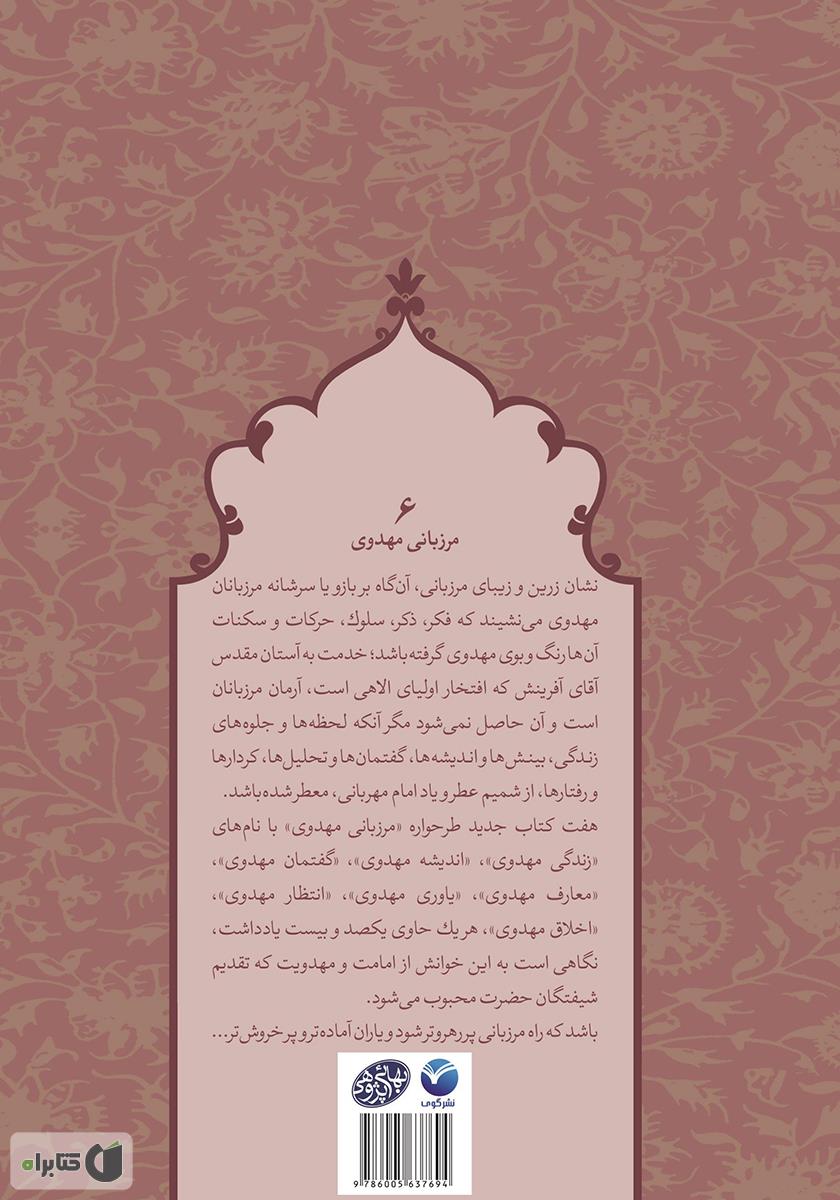 ۶
مرزبانی مهدوی
نشان زرین و زیبای مرزبانی، آن‌گاه بر بازو یا سرشانه مرزبانان
مهدوی می‌نشیند که فکر، ذکر، سلوك، حرکات و سکنات
آن‌ها رنگ و بوی مهدوی گرفته باشد؛ خدمت به آستان مقدس
آقای آفرینش که افتخار اولیای الاهی است، آرمان مرزبانان
است و آن حاصل نمی‌شود مگر آنکه لحظه‌ها و جلوه‌های
زندگی، بینش‌ها و اندیشه‌ها، گفتمان‌ها و تحلیل‌ها، کردارها
و رفتارها، از شمیم عطر و یاد امام مهربانی، معطر شده باشد.
هفت کتاب جدید طرحواره «مرزبانی مهدوی» با نام‌های
«زندگی مهدوی»، «اندیشه مهدوی»، «گفتمان مهدوی»،
«معارف مهدوی»، «یاوری مهدوی»، «انتظار مهدوی»،
«اخلاق مهدوی»، هر یك حاوی یکصد و بیست یادداشت،
نگاهی است به این خوانش از امامت و مهدویت که تقدیم
شیفتگان حضرت محبوب می‌شود.
باشد که راه مرزبانی پر رهروتر شود و یاران آماده‌تر و پر خروش‌تر...
بهائی پژوهی
نشر گوی
9 786005 637694
کتابراه